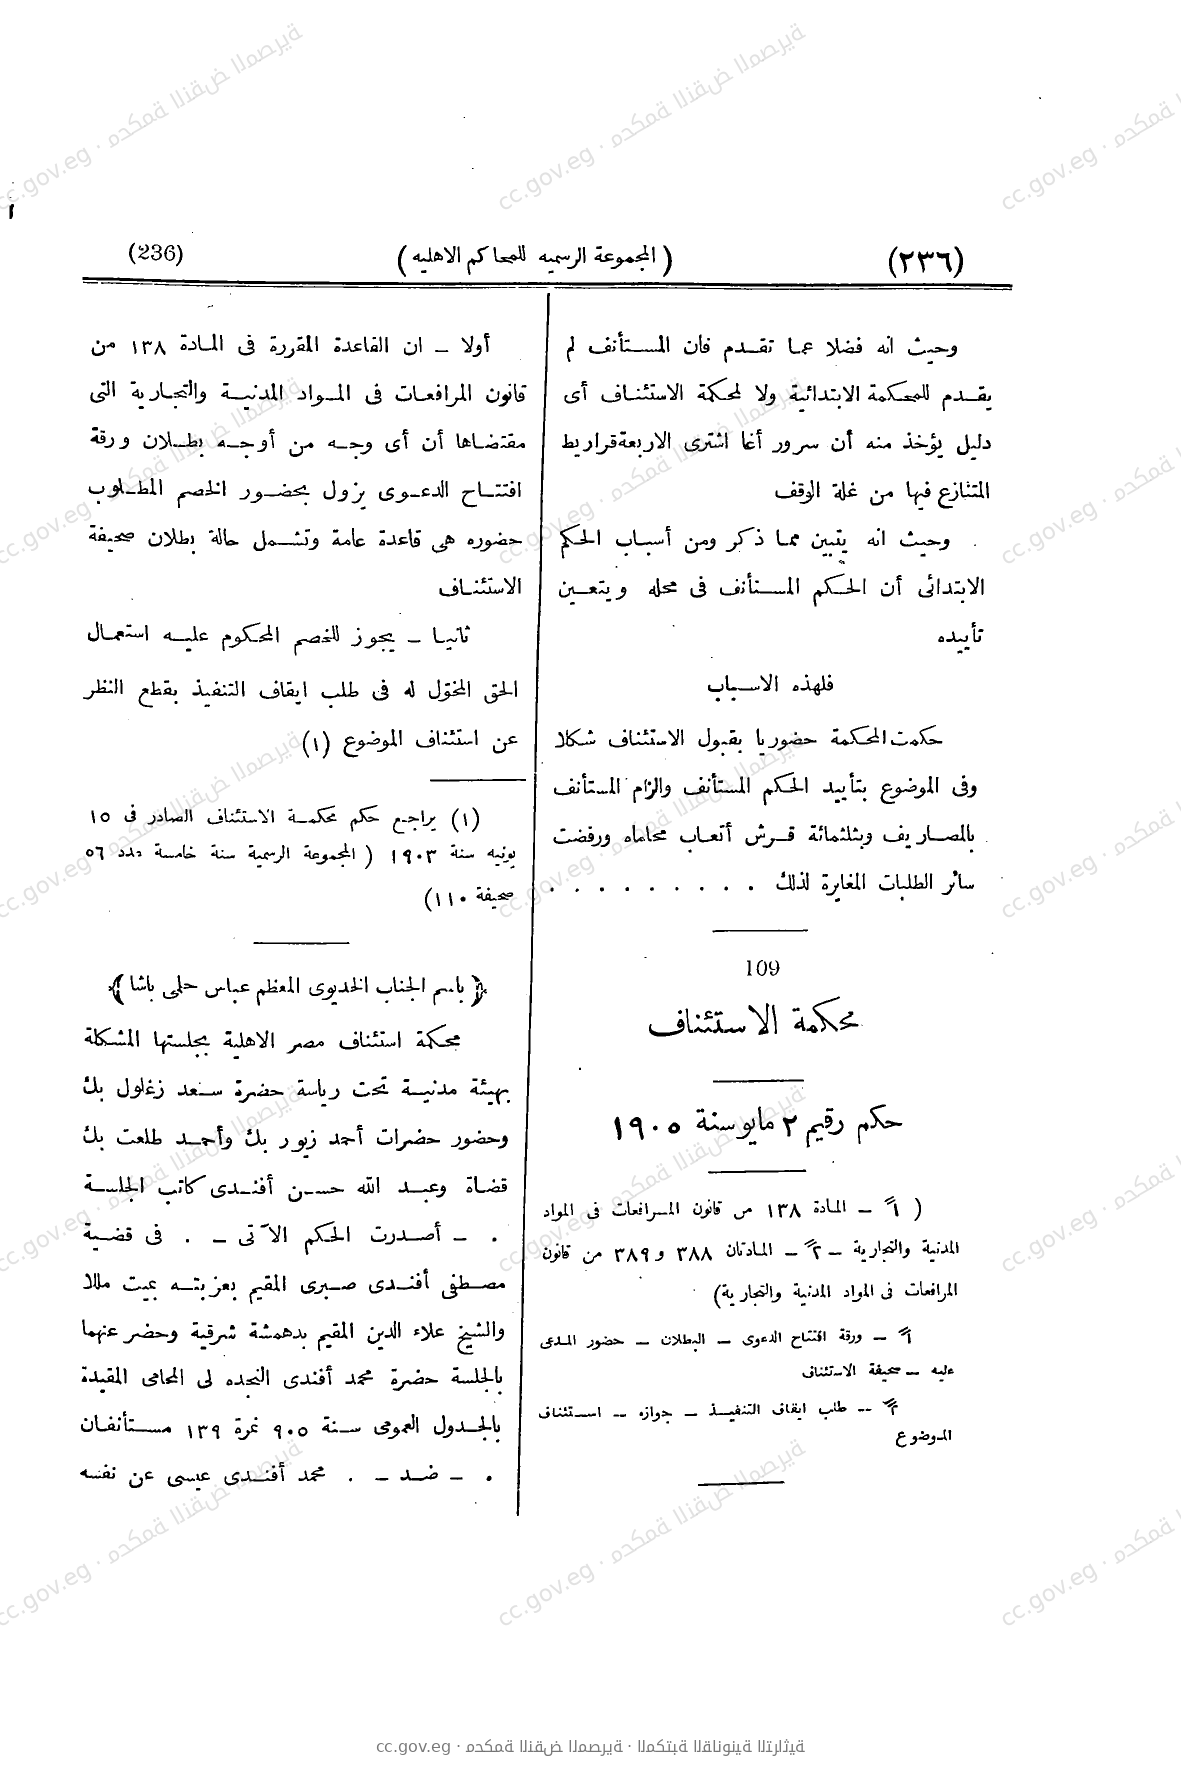 (٢٣٦)
( المجموعة الرسميه للمحاكم الاهليه )
(236)
وحيث انه فضلا عما تقدم فان المستأنف لم
يقدم للمحكمة الابتدائية ولا لمحكمة الاستئناف أى
دليل يؤخذ منه أن سرور أغا اشترى الاربعة قراريط
المتنازع فيها من غلة الوقف
وحيث انه يتبين مما ذكر ومن أسباب الحكم
الابتدائى أن الحكم المستأنف فى محله ويتعين
تأييده
فلهذه الاسباب
حكمت المحكمة حضوريا بقبول الاستئناف شكلا
وفى الموضوع بتأييد الحكم المستأنف والزام المستأنف
بالمصاريف وبثلثمائة قرش أتعاب محاماه ورفضت
سائر الطلبات المغايرة لذلك . . . . . . . . . .
109
محكمة الاستئناف
حكم رقيم ٢ مايو سنة ١٩٠٥
( ١ً – المادة ١٣٨ من قانون المرافعات فى المواد
المدنية والتجارية – ٢ً – المادتان ٣٨٨ و ٣٨٩ من قانون
المرافعات فى المواد المدنية والتجارية)
١ً – ورقة افتتاح الدعوى – البطلان – حضور المدعى
عليه – صحيفة الاستئناف
٢ً – طلب ايقاف التنفيذ – جوازه – استئناف
الموضوع
أولا – ان القاعدة المقررة فى المادة ١٣٨ من
قانون المرافعات فى المواد المدنية والتجارية التى
مقتضاها أن أى وجه من أوجه بطلان ورقة
افتتاح الدعوى يزول بحضور الخصم المطلوب
حضوره هى قاعدة عامة وتشمل حالة بطلان صحيفة
الاستئناف
ثانيا – يجوز للخصم المحكوم عليه استعمال
الحق المخوّل له فى طلب ايقاف التنفيذ بقطع النظر
عن استئناف الموضوع (١)
(١) يراجع حكم محكمة الاستئناف الصادر فى ١٥
يونيه سنة ١٩٠٣ ( المجموعة الرسمية سنة خامسة عدد ٥٦
صحيفة ١١٠)
﴿ باسم الجناب الخديوى المعظم عباس حلمى باشا ﴾
محكمة استئناف مصر الاهلية بجلستها المشكلة
بهيئة مدنية تحت رياسة حضرة سعد زغلول بك
وحضور حضرات أحمد زيور بك وأحمد طلعت بك
قضاة وعبد الله حسن أفندى كاتب الجلسة
. – أصدرت الحكم الآتى – . فى قضية
مصطفى أفندى صبرى المقيم بعزبته بميت ملالا
والشيخ علاء الدين المقيم بدهمشة شرقية وحضر عنهما
بالجلسة حضرة محمد أفندى النجده لى المحامى المقيدة
بالجدول العمومى سنة ٩٠٥ نمرة ١٣٩ مستأنفان
. – ضد – . محمد أفندى عيسى عن نفسه
cc.gov.eg · محكمة النقض المصرية · المكتبة القانونية التراثية